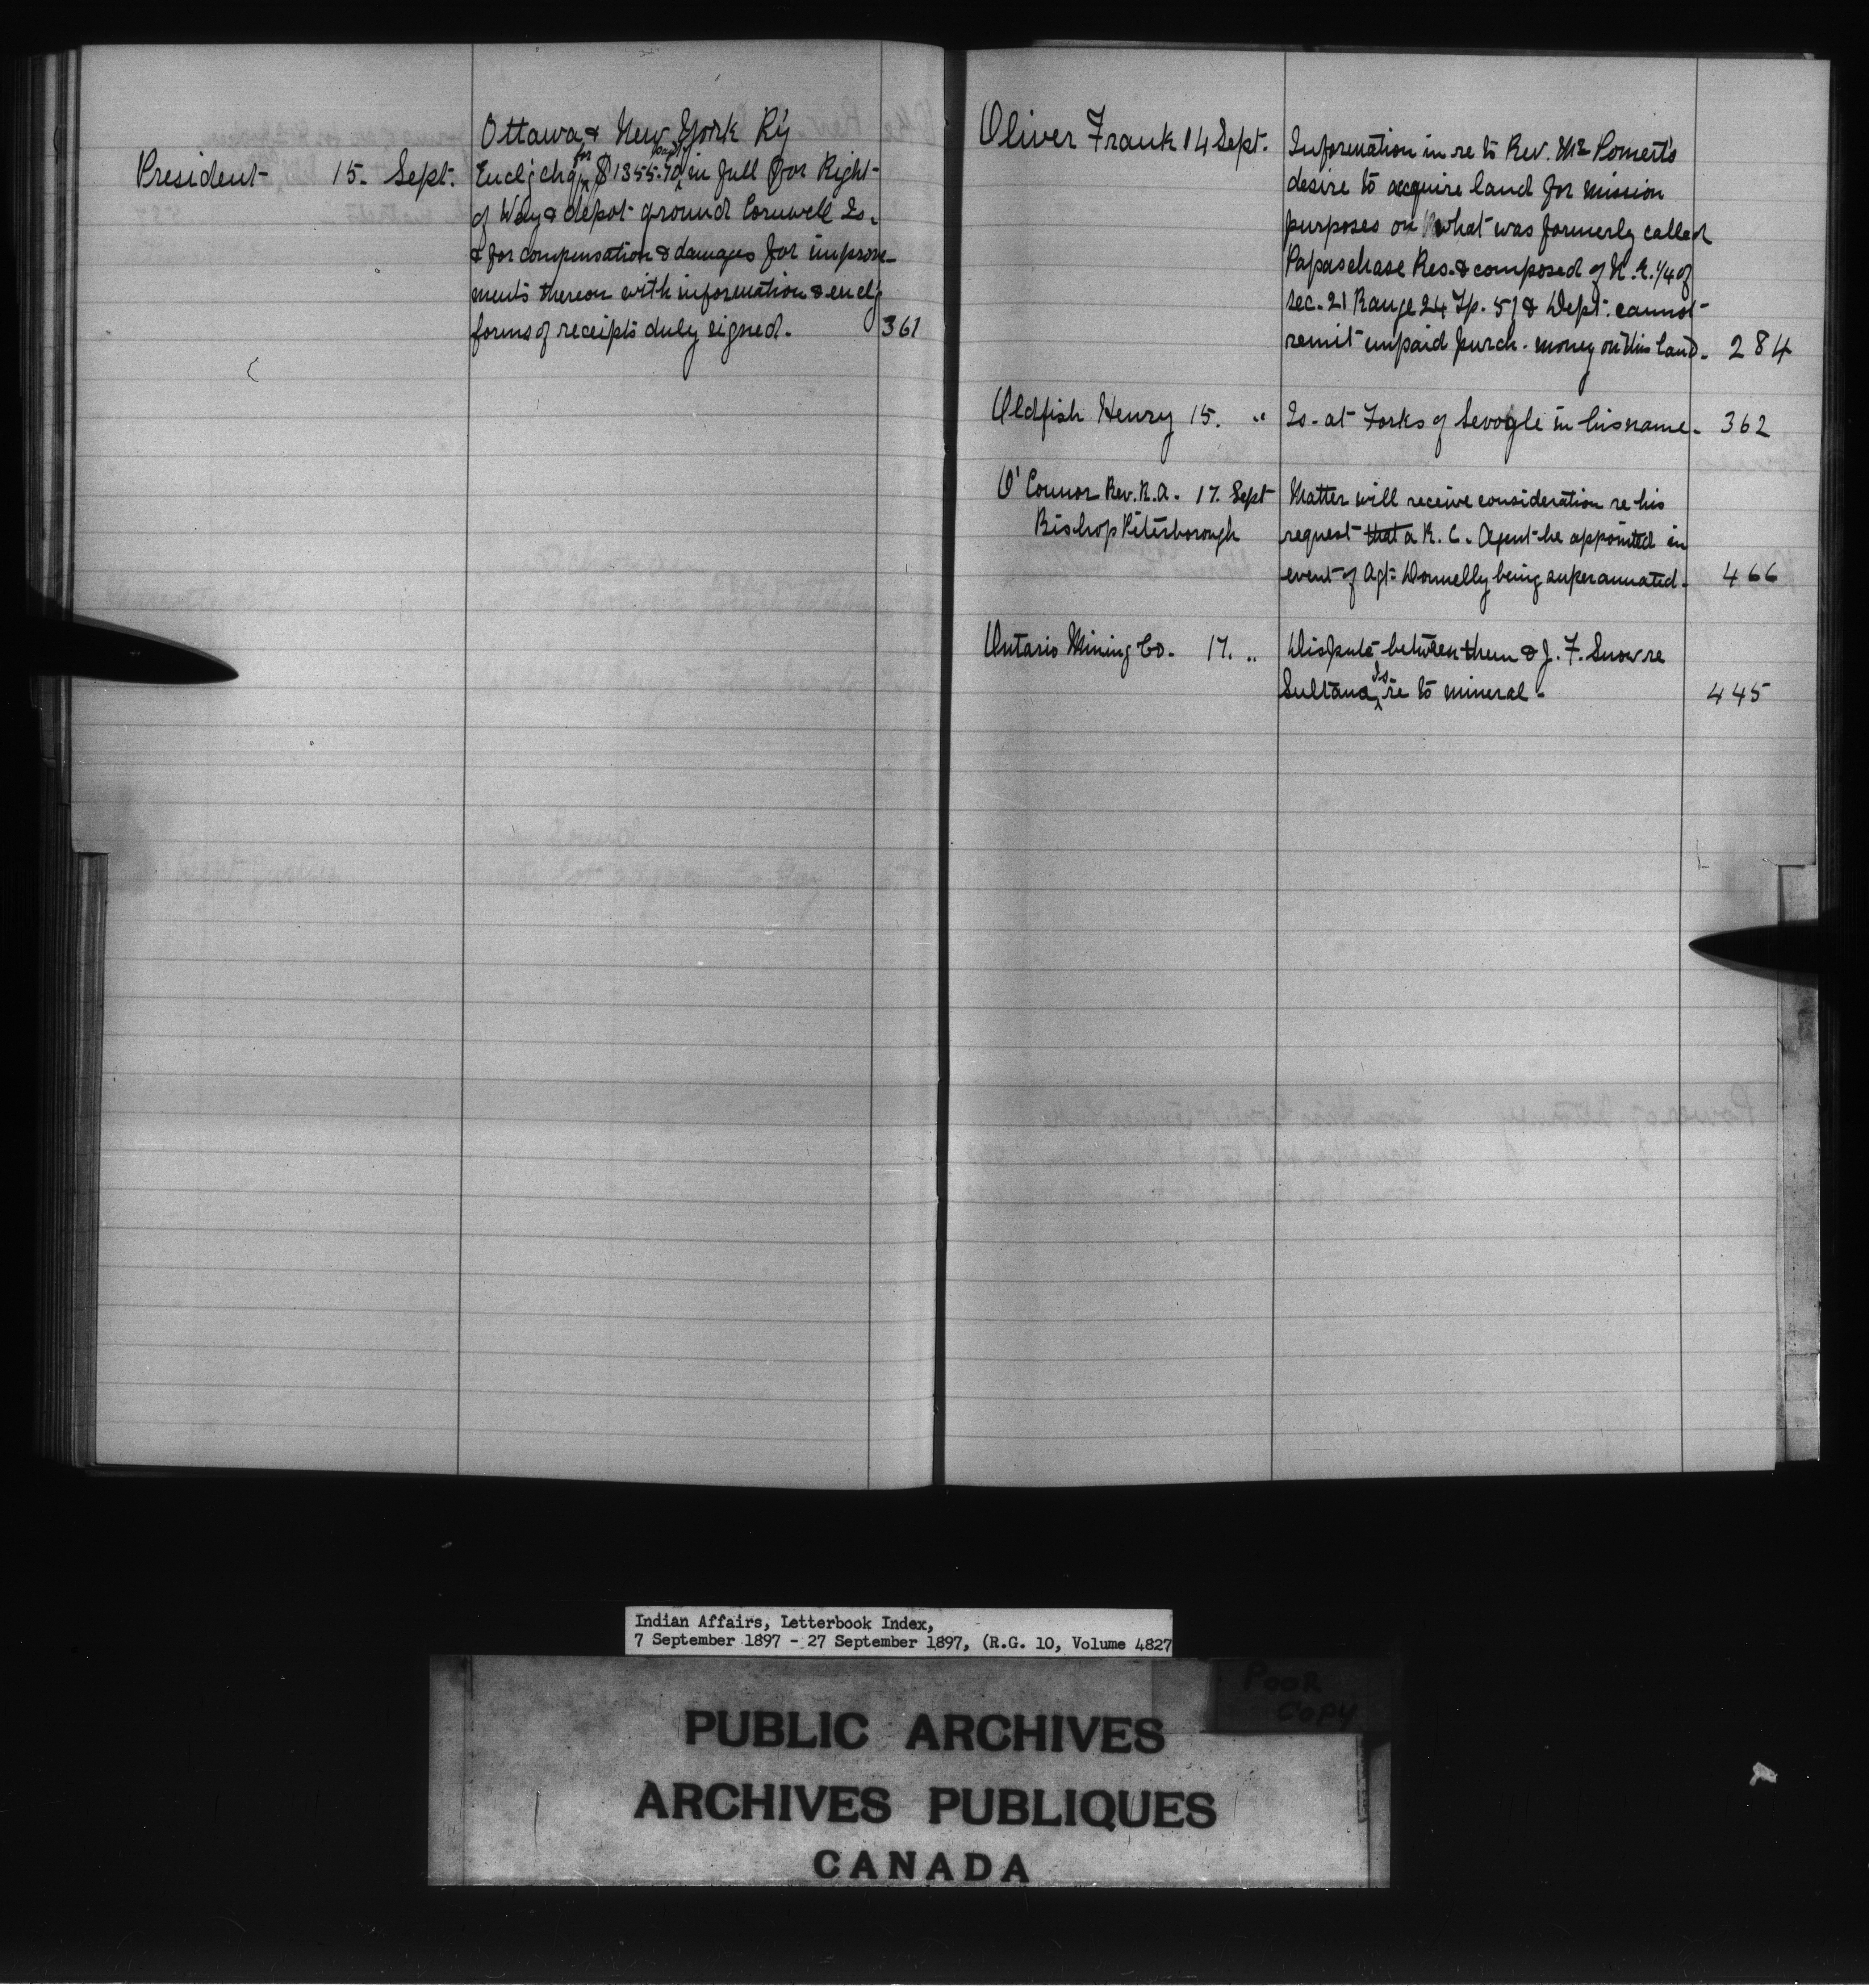 Ottawa & New York R'y
President 15. Sept. Encl'g chq for $1355.70 paid in full for Right
of Way & depot ground Cornwell Is.
& for compensation & damages for improve-
ments thereon with information & encl'g
forms of receipts duly signed. 361
Oliver Frank 14 Sept. Information in re to Rev. Mr
desire to acquire land for mission
purposes on what was formerly called
Papaschase Res. & composed of N.E. 1/4 of
sec. 21 Range 24 Tp. 51 & Dept. cannot
remit unpaid purch. money on this land. 284
Oldfish Henry 15. " Is. at Forks of Sevogle in his name. 362
O'Connor Rev. R.A. 17. Sept Matter will receive consideration re his
Bishop Peterborough request that a R. C. Agent be appointed in
event of Agt: Donnelly being superannuated. 466
Ontario Mining Co. 17. " Dispute between them & J. F. Snow re
Sultana Is. re to mineral. 445
Indian Affairs, Letterbook Index,
7 September 1897 - 27 September 1897, (R.G. 10, Volume 4827
POOR
COPY
PUBLIC ARCHIVES
ARCHIVES PUBLIQUES
CANADA